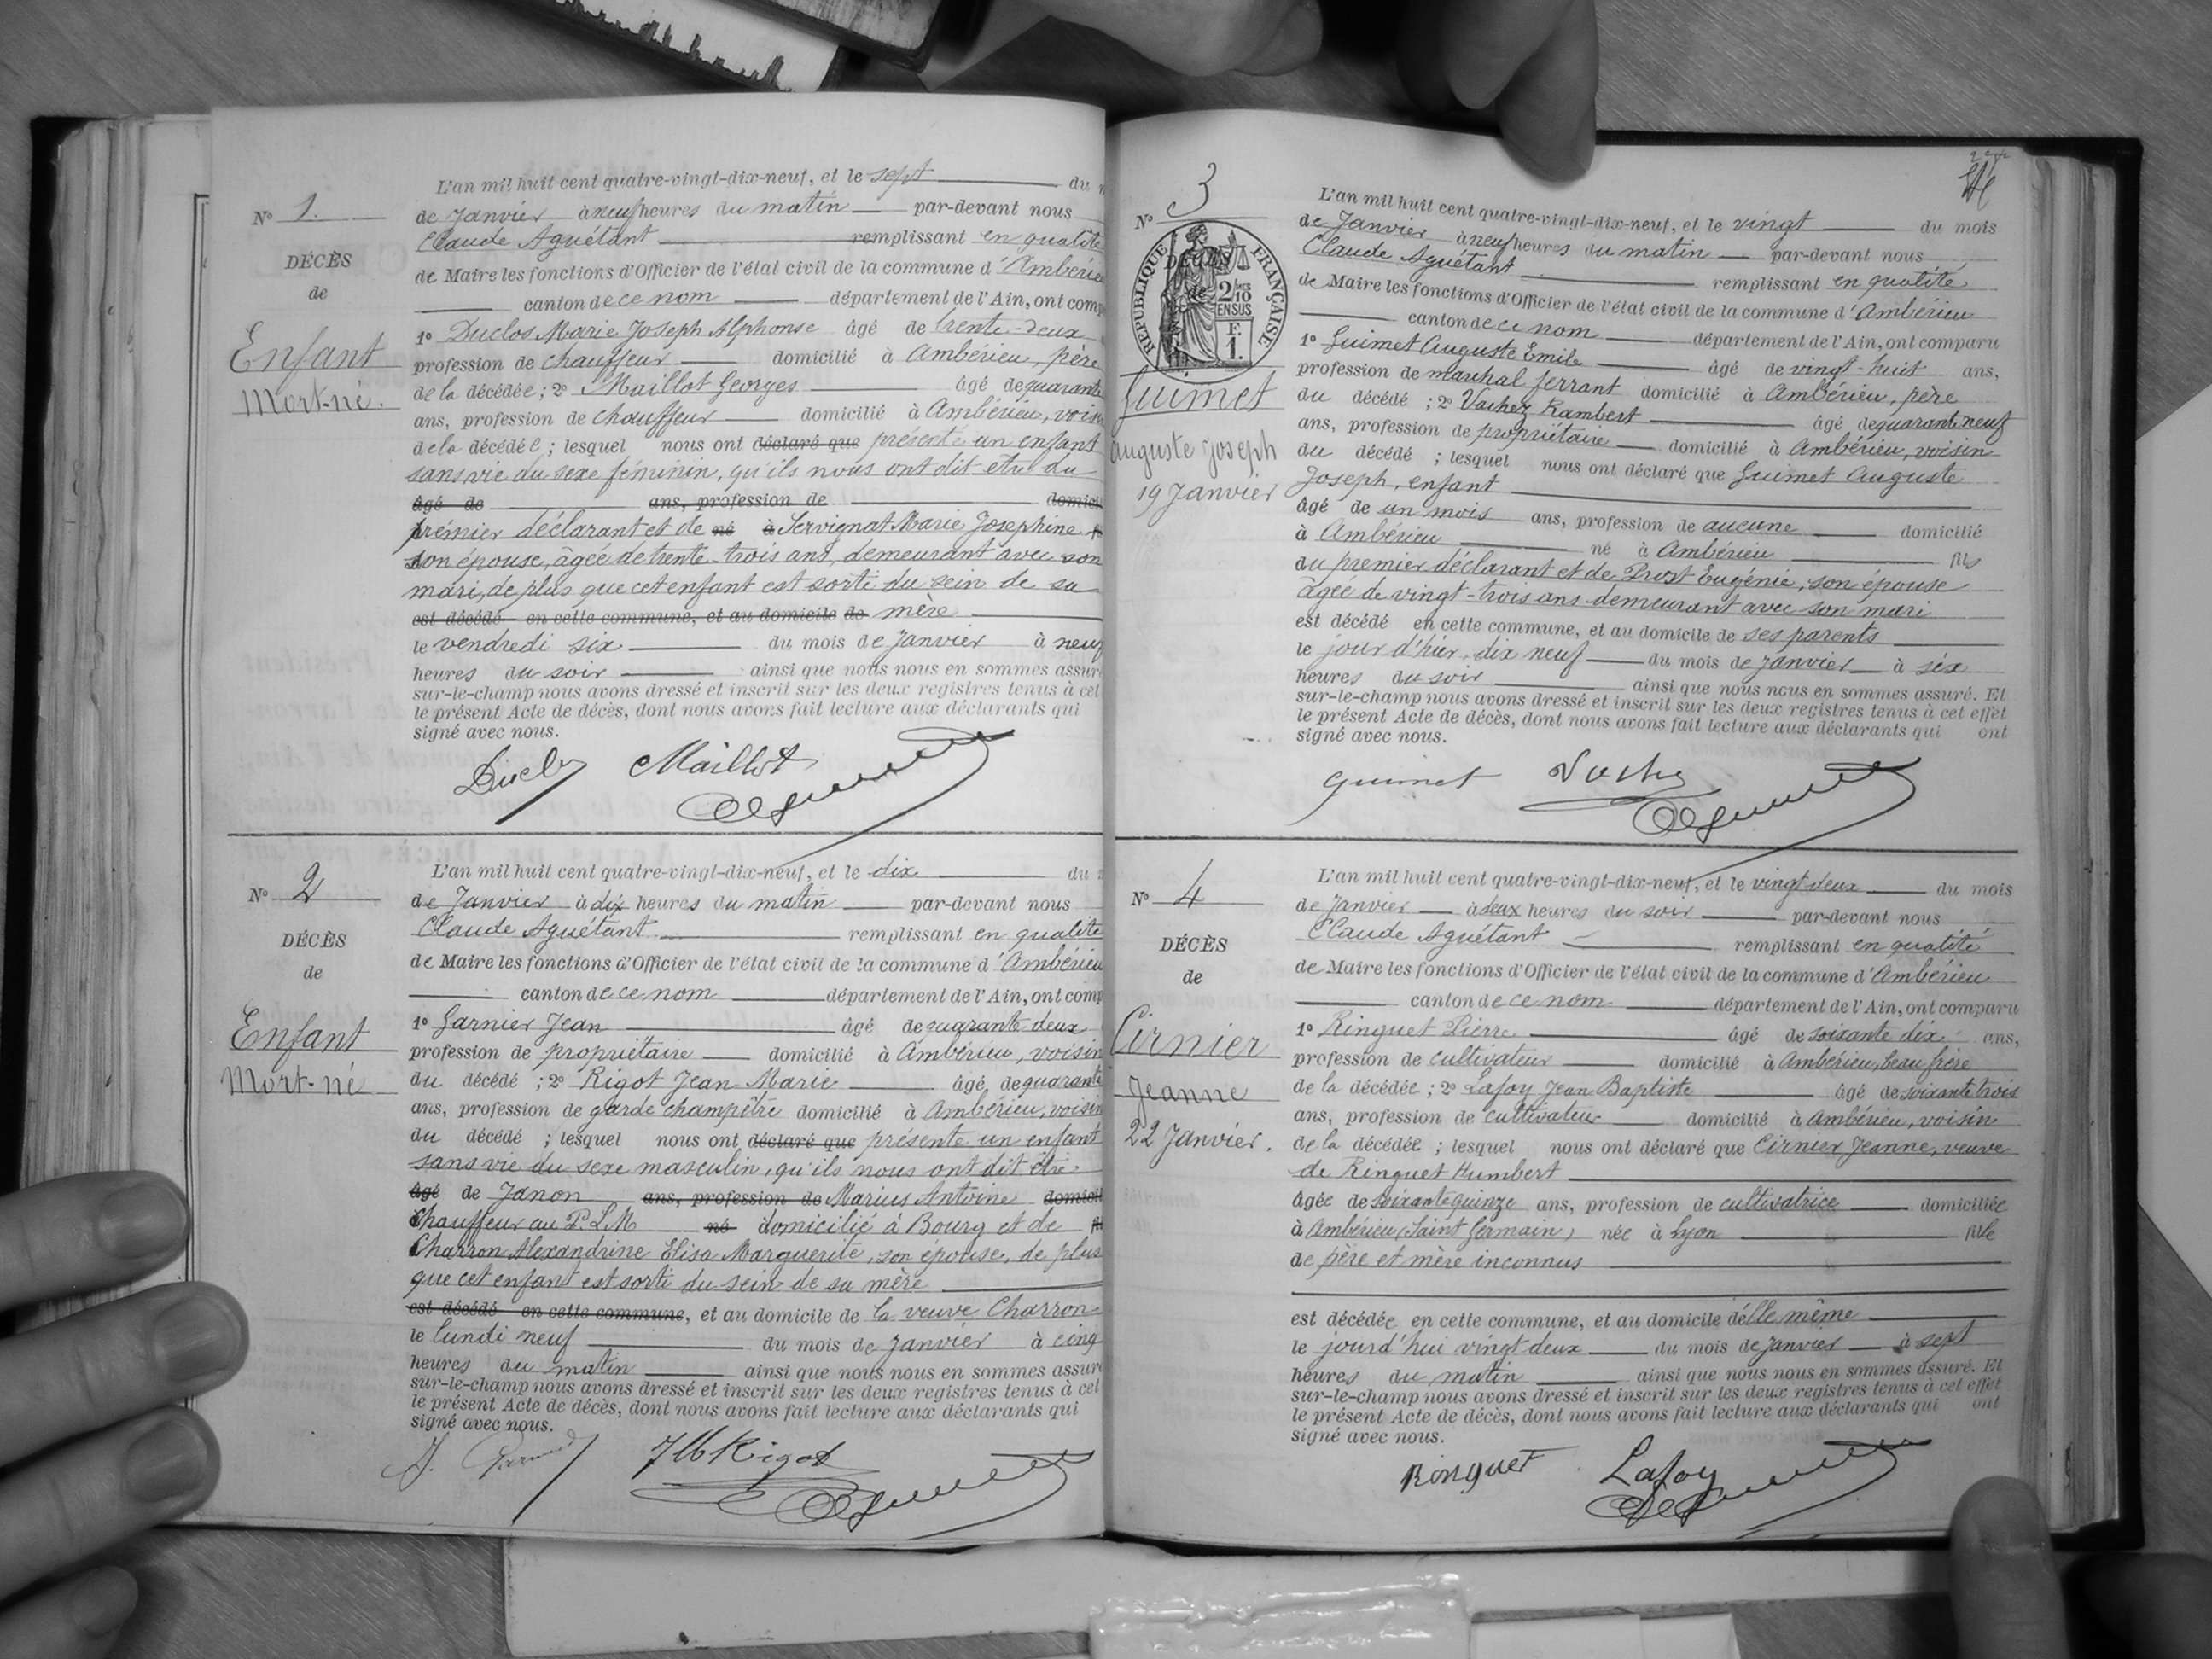 N° 1.
DÉCÈS
de
Enfant
Mort-né.
L'an mil huit cent quatre-vingt-dix-neuf, et le sept du
de Janvier à neuf heures du matin par-devant nous
Claude Aguétant remplissant en qualité
de Maire les fonctions d'Officier de l'état civil de la commune d'Ambérieu
canton de ce nom département de l'Ain, ont comp
1° Duclos Marie Joseph Alphonse âgé de trente-deux
profession de chauffeur domicilié à Ambérieu, père
de la décédée ; 2° Maillot Georges âgé de quarante
ans, profession de chauffeur domicilié à Ambérieu, voisin
de la décédée ; lesquel nous ont déclaré que présenté un enfant
sans vie du sexe féminin, qu'ils nous ont dit être du
âgé de ans, profession de domici
premier déclarant et de né à Servignat Marie Josephine
son épouse, âgée de trente-trois ans, demeurant avec son
mari, de plus que cet enfant est sorti du sein de sa
est décédé en cette commune, et au domicile de mère
le vendredi six du mois de Janvier à neuf
heures du soir ainsi que nous nous en sommes assuré
sur-le-champ nous avons dressé et inscrit sur les deux registres tenus à cet
le présent Acte de décès, dont nous avons fait lecture aux déclarants qui
signé avec nous.
Duclos Maillot
N° 2
DÉCÈS
de
Enfant
Mort-né
L'an mil huit cent quatre-vingt-dix-neuf, et le dix du
de Janvier à dix heures du matin par-devant nous
Claude Aguétant remplissant en qualité
de Maire les fonctions d'Officier de l'état civil de la commune d'Ambérieu
canton de ce nom département de l'Ain, ont comp
1° Garnier Jean âgé de quarante-deux
profession de propriétaire domicilié à Ambérieu, voisin
du décédé ; 2° Rigot Jean Marie âgé de quarante
ans, profession de garde champêtre domicilié à Ambérieu, voisin
du décédé ; lesquel nous ont déclaré que présenté un enfant
sans vie du sexe masculin, qu'ils nous ont dit être
âgé de Janon ans, profession de Marius Antoine domicil
chauffeur au P.L.M né domicilié à Bourg et de
Charron Alexandrine Elisa Marguerite, son épouse, de plus
que cet enfant est sorti du sein de sa mère
est décédé en cette commune, et au domicile de la veuve Charron
le lundi neuf du mois de Janvier à cinq
heures du matin ainsi que nous nous en sommes assuré
sur-le-champ nous avons dressé et inscrit sur les deux registres tenus à cet
le présent Acte de décès, dont nous avons fait lecture aux déclarants qui
signé avec nous.
JM Rigot
N° 3
DÉCÈS
RÉPUBLIQUE FRANÇAISE
2/10 EN SUS
F. 1.
Guimet
Auguste Joseph
19 Janvier
L'an mil huit cent quatre-vingt-dix-neuf, et le vingt du mois
de Janvier à neuf heures du matin par-devant nous
Claude Aguétant remplissant en qualité
de Maire les fonctions d'Officier de l'état civil de la commune d'Ambérieu
canton de ce nom département de l'Ain, ont comparu
1° Guimet Auguste Emile âgé de vingt-huit ans,
profession de maréchal ferrant domicilié à Ambérieu, père
du décédé ; 2° Vachez Rambert âgé de quarante neuf
ans, profession de propriétaire domicilié à Ambérieu, voisin
du décédé ; lesquel nous ont déclaré que Guimet Auguste
Joseph, enfant
âgé de un mois ans, profession de aucune domicilié
à Ambérieu né à Ambérieu fils
du premier déclarant et de Prost Eugénie, son épouse
âgée de vingt-trois ans demeurant avec son mari
est décédé en cette commune, et au domicile de ses parents
le jour d'hier, dix neuf du mois de Janvier à six
heures du soir ainsi que nous nous en sommes assuré. Et
sur-le-champ nous avons dressé et inscrit sur les deux registres tenus à cet effet
le présent Acte de décès, dont nous avons fait lecture aux déclarants qui ont
signé avec nous.
Guimet
N° 4
DÉCÈS
de
Cirnier
Jeanne
22 Janvier.
L'an mil huit cent quatre-vingt-dix-neuf, et le vingt-deux du mois
de Janvier à deux heures du soir par-devant nous
Claude Aguétant remplissant en qualité
de Maire les fonctions d'Officier de l'état civil de la commune d'Ambérieu
canton de ce nom département de l'Ain, ont comparu
1° Ringuet Pierre âgé de soixante dix ans,
profession de cultivateur domicilié à Ambérieu, beau frère
de la décédée ; 2° Lafoy Jean Baptiste âgé de soixante trois
ans, profession de cultivateur domicilié à Ambérieu, voisin
de la décédée ; lesquel nous ont déclaré que Cirnier Jeanne, veuve
de Ringuet Humbert
âgée de soixante quinze ans, profession de cultivatrice domiciliée
à Ambérieu (Saint Germain) née à Lyon fille
de père et mère inconnus
est décédée en cette commune, et au domicile d'elle même
le jourd'hui vingt deux du mois de Janvier à sept
heures du matin ainsi que nous nous en sommes assuré. Et
sur-le-champ nous avons dressé et inscrit sur les deux registres tenus à cet effet
le présent Acte de décès, dont nous avons fait lecture aux déclarants qui ont
signé avec nous.
Ringuet Lafoy